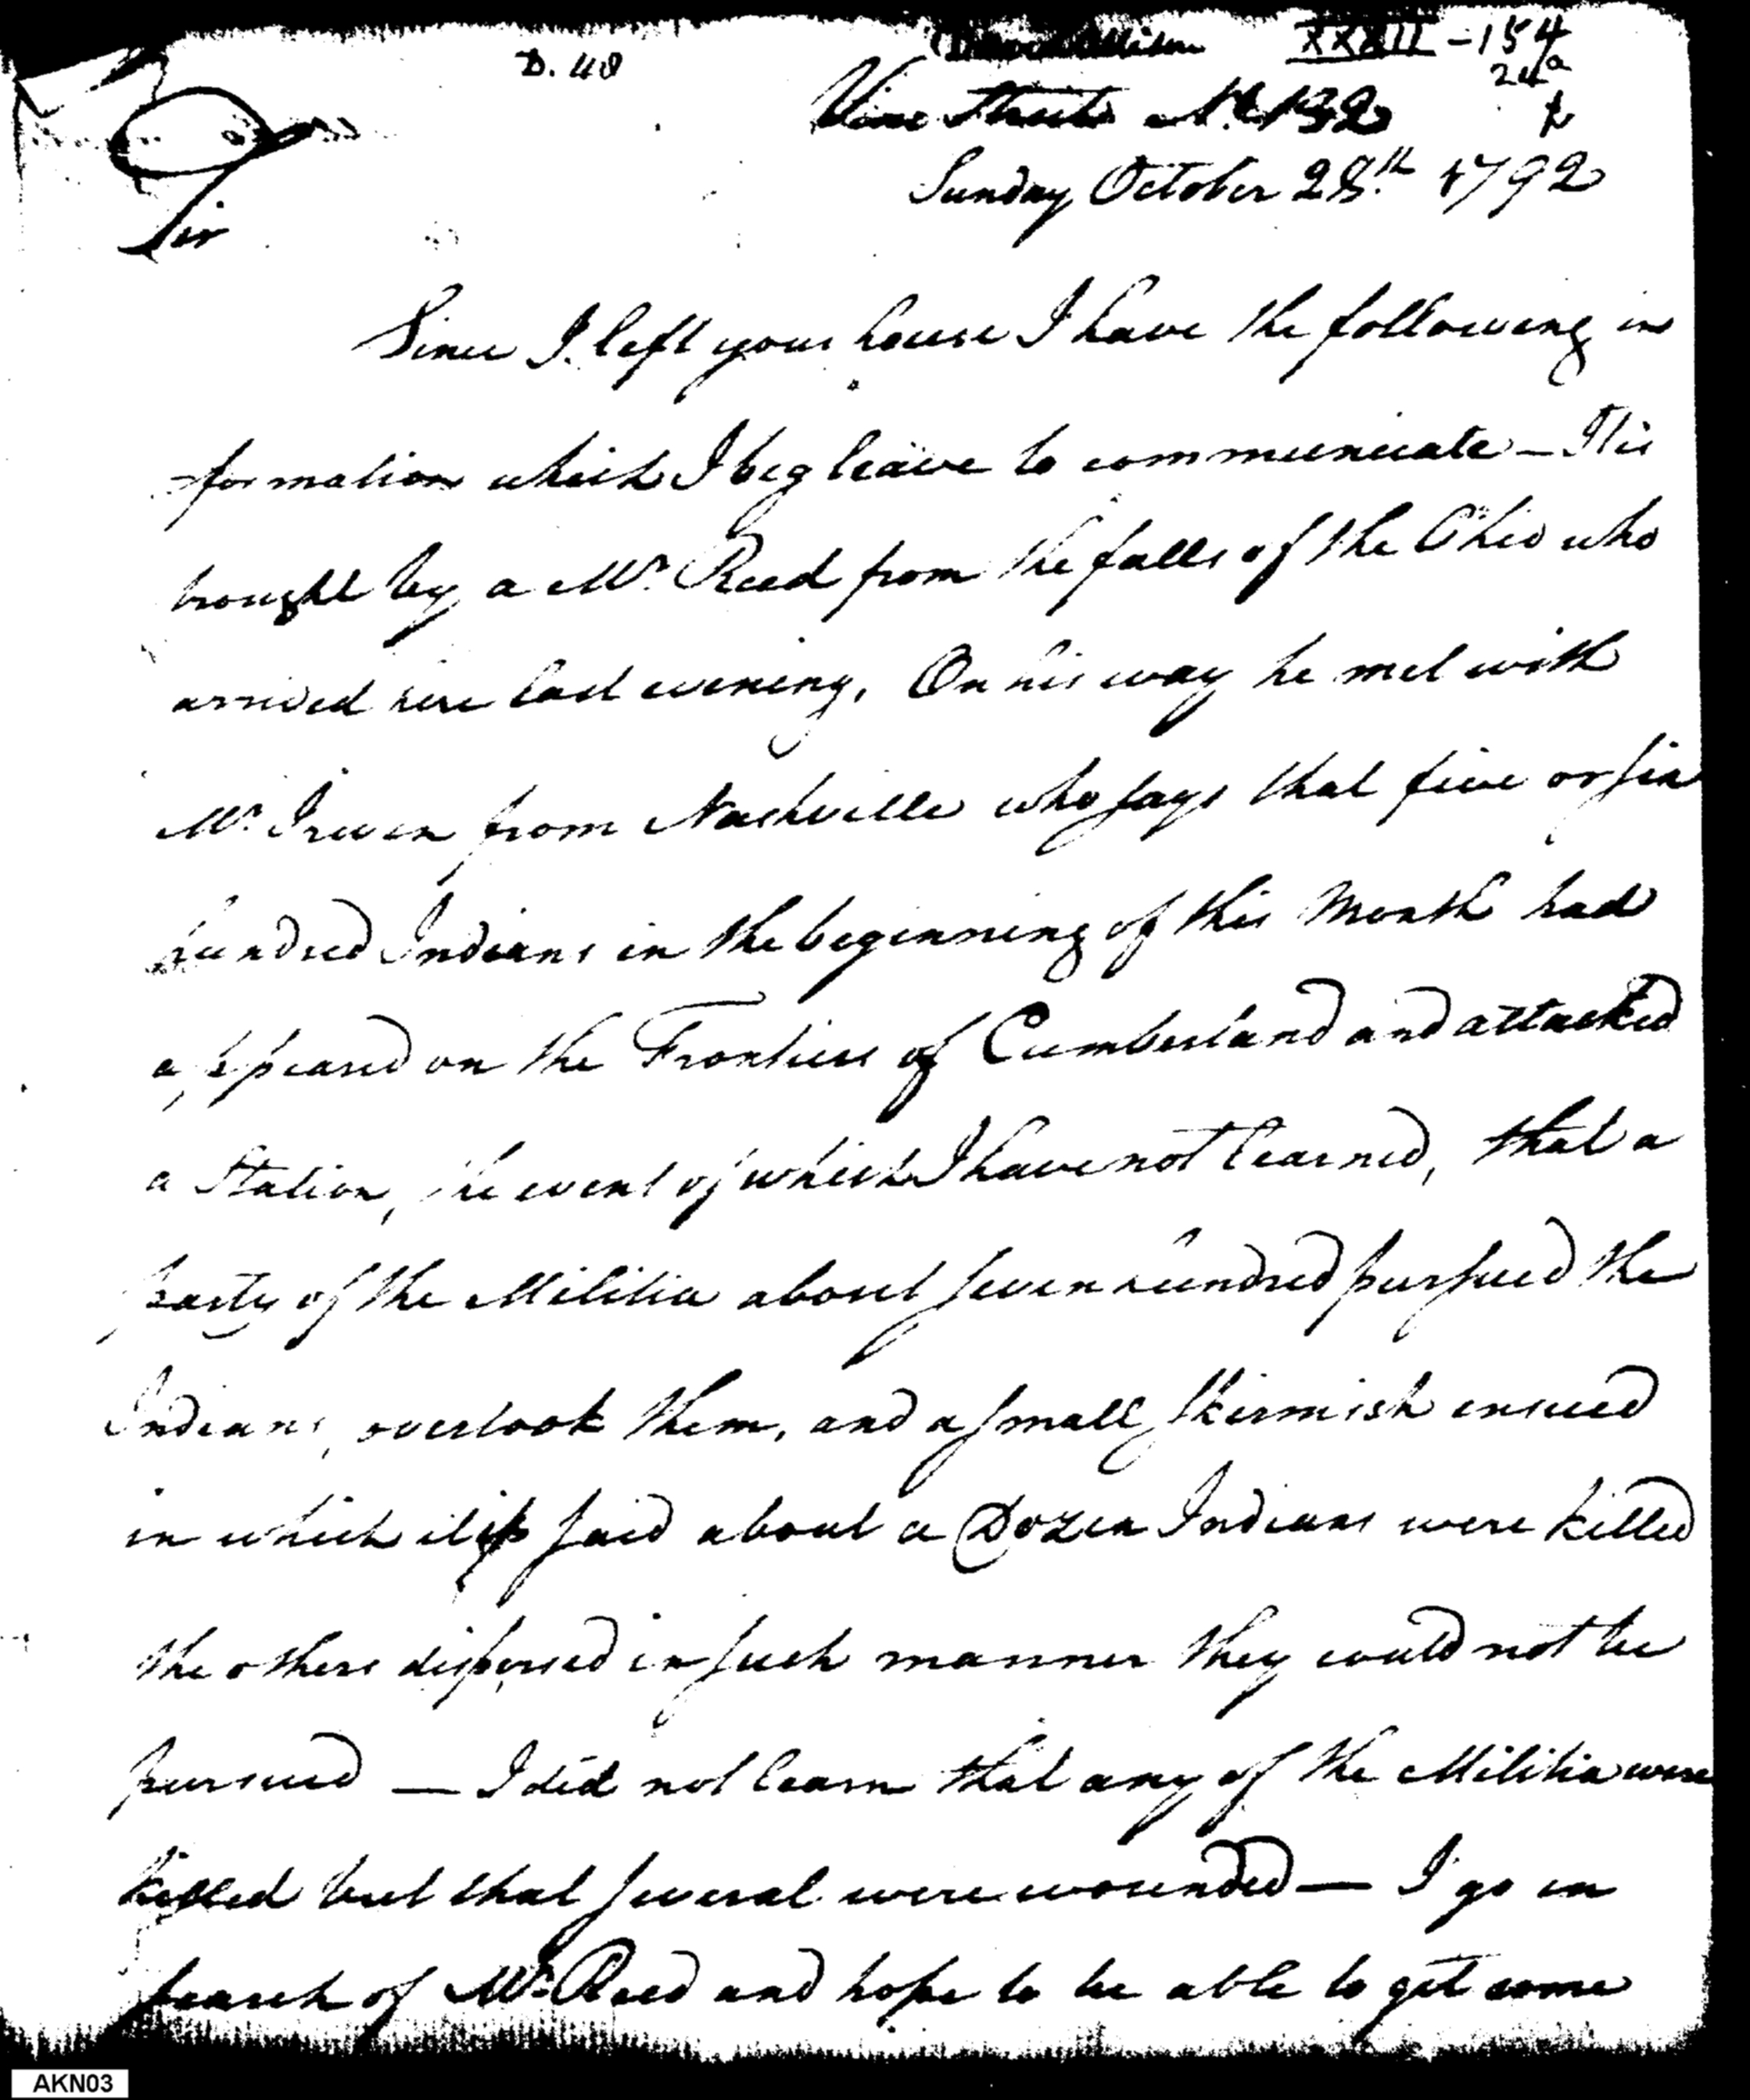 D. 48
XXXIII - 154
Vine Street No. 132
Sunday October 28th 1792
Sir
Since I left your house I have the following in
formation which I beg leave to communicate — It is
brought by a Mr. Reed from the falls of the Ohio who
arrived here last evening, On his way he met with
Mr. Irwin from Nashville who says that five or six
hundred Indians in the beginning of this Month had
appeared on the Frontiers of Cumberland and attacked
a Station, the event of which I have not learned, that a
party of the Militia about seven hundred pursued the
Indians, overtook them, and a small skirmish ensued
in which it is said about a Dozen Indians were killed
the others dispersed in such manner they could not be
pursued — I did not learn that any of the Militia were
killed but that several were wounded — I go in
search of Mr. Reed and hope to be able to get some
AKN03